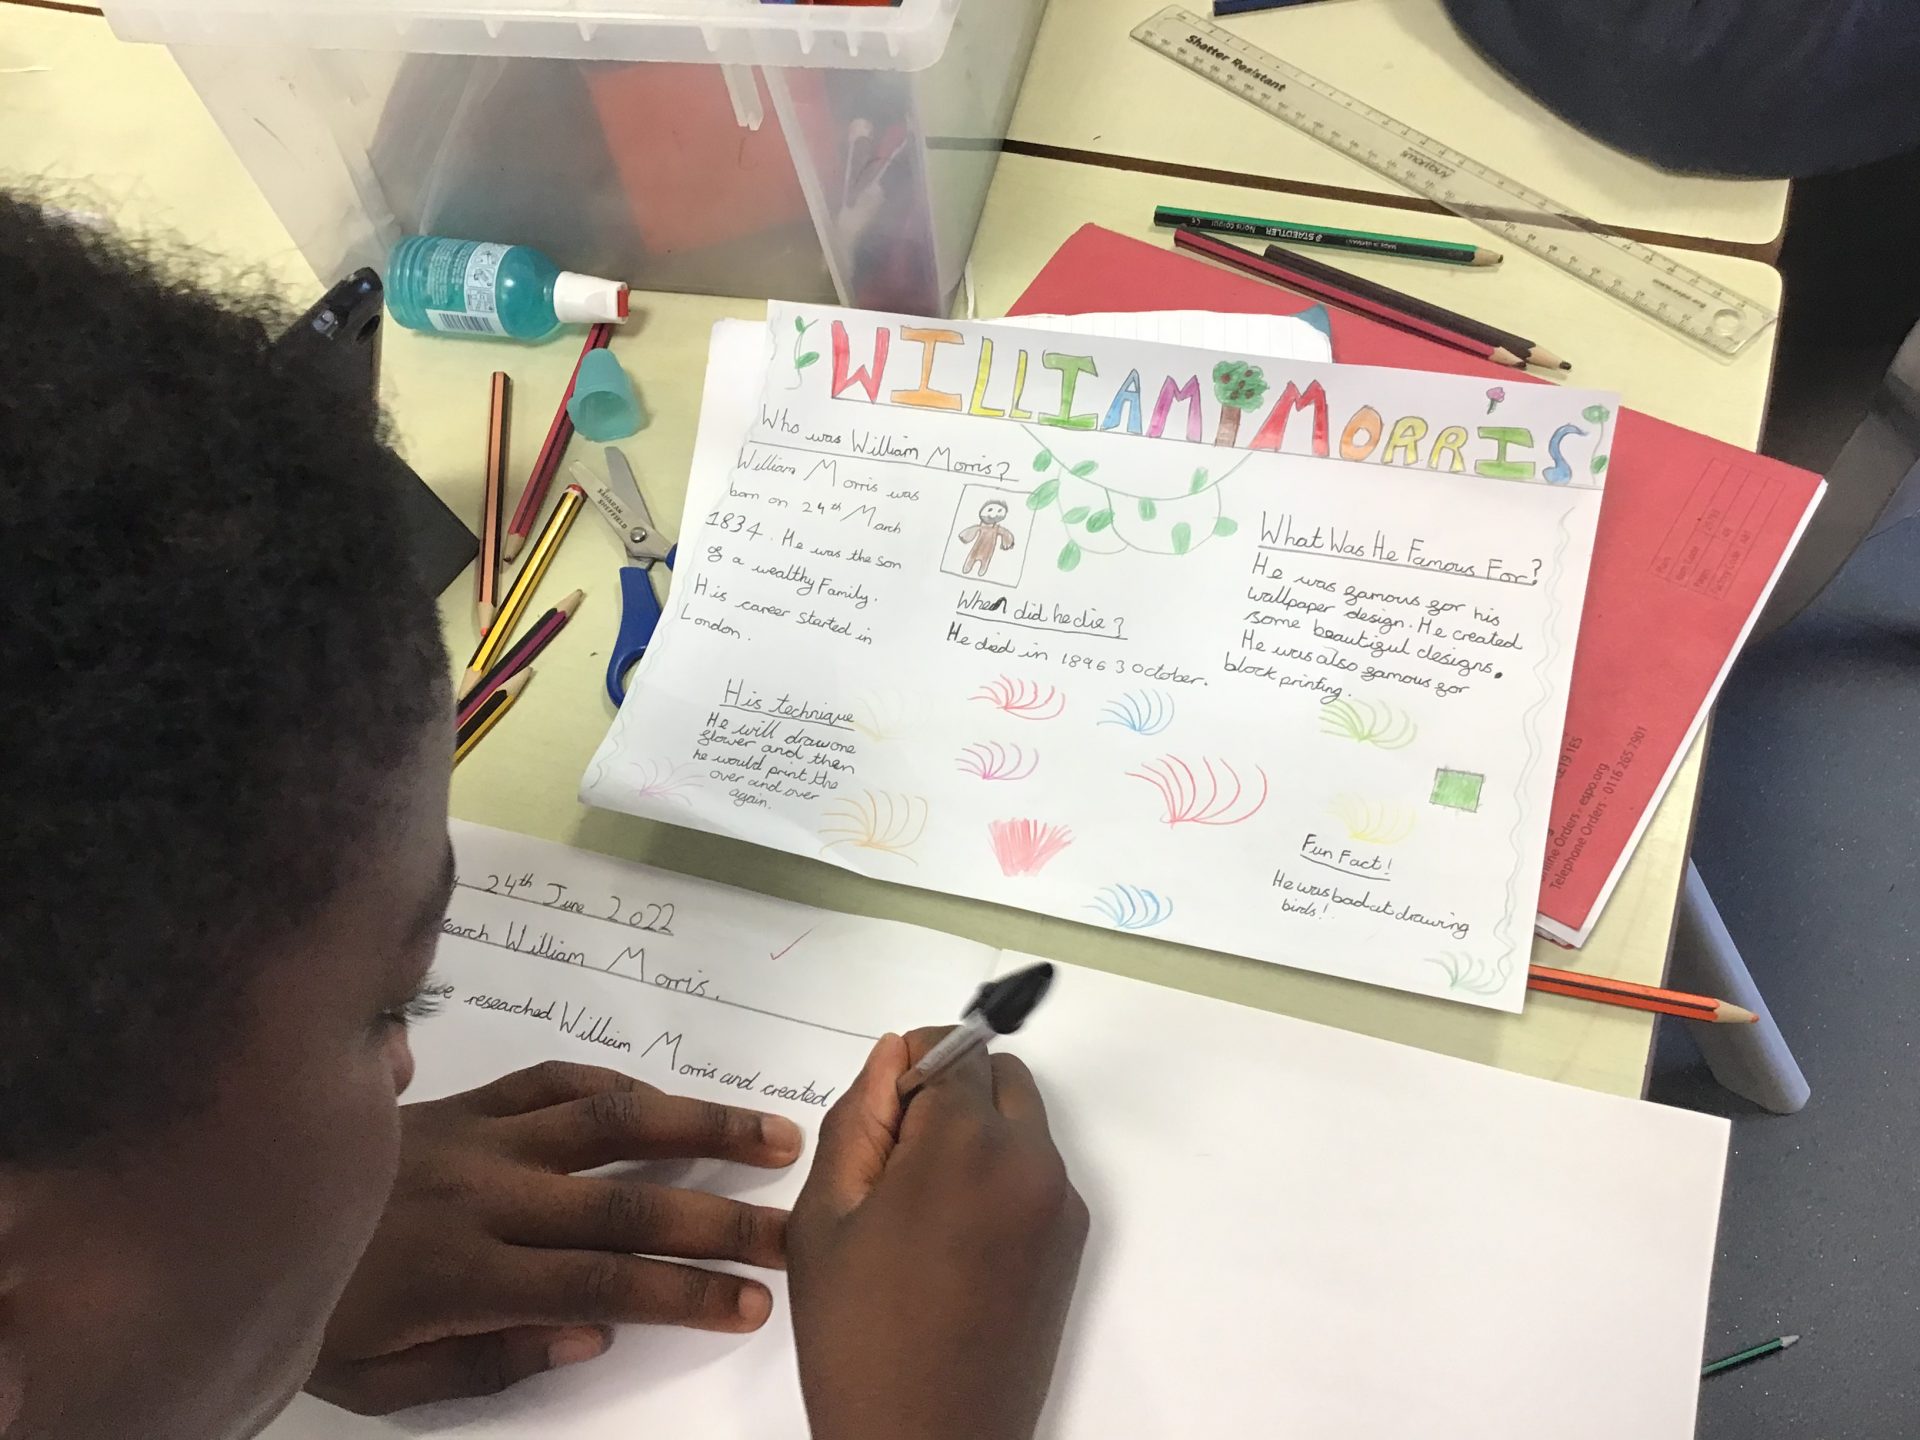 WILLIAM MORRIS
Who was William Morris?
William Morris was
born on 24th March
1834. He was the son
of a wealthy Family.
His career started in
London.
When did he die?
He died in 1896 3 October.
What Was He Famous For?
He was famous for his
wallpaper design. He created
some beautiful designs.
He was also famous for
block printing.
His technique
He will draw one
flower and then
he would print the
over and over
again.
Fun Fact!
He was bad at drawing
birds!
24th June 2022
William Morris.
we researched William Morris and created
Shatter Resistant
smartbuy
www.espo.org
STAEDTLER Noris colour
MADE IN GERMANY
SHEFFIELD
LE19 1ES
Online Orders - espo.org
Telephone Orders - 0116 265 7901